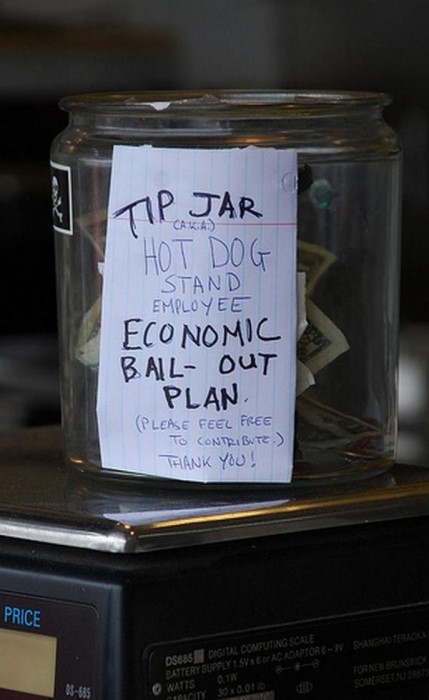 TIP JAR
(A.K.A.)
HOT DOG
STAND
EMPLOYEE
ECONOMIC
BAIL- OUT
PLAN.
(PLEASE FEEL FREE
TO CONTRIBUTE.)
THANK YOU!
PRICE
DS-685
DS685 DIGITAL COMPUTING SCALE
BATTERY SUPPLY 1.5V x 6 or AC ADAPTOR 6-9V
WATTS 0.1W
CAPACITY 30 x 0.01 lb
SHANGHAI TERAOKA
FOR NEW BRUNSWICK
SOMERSET, NJ